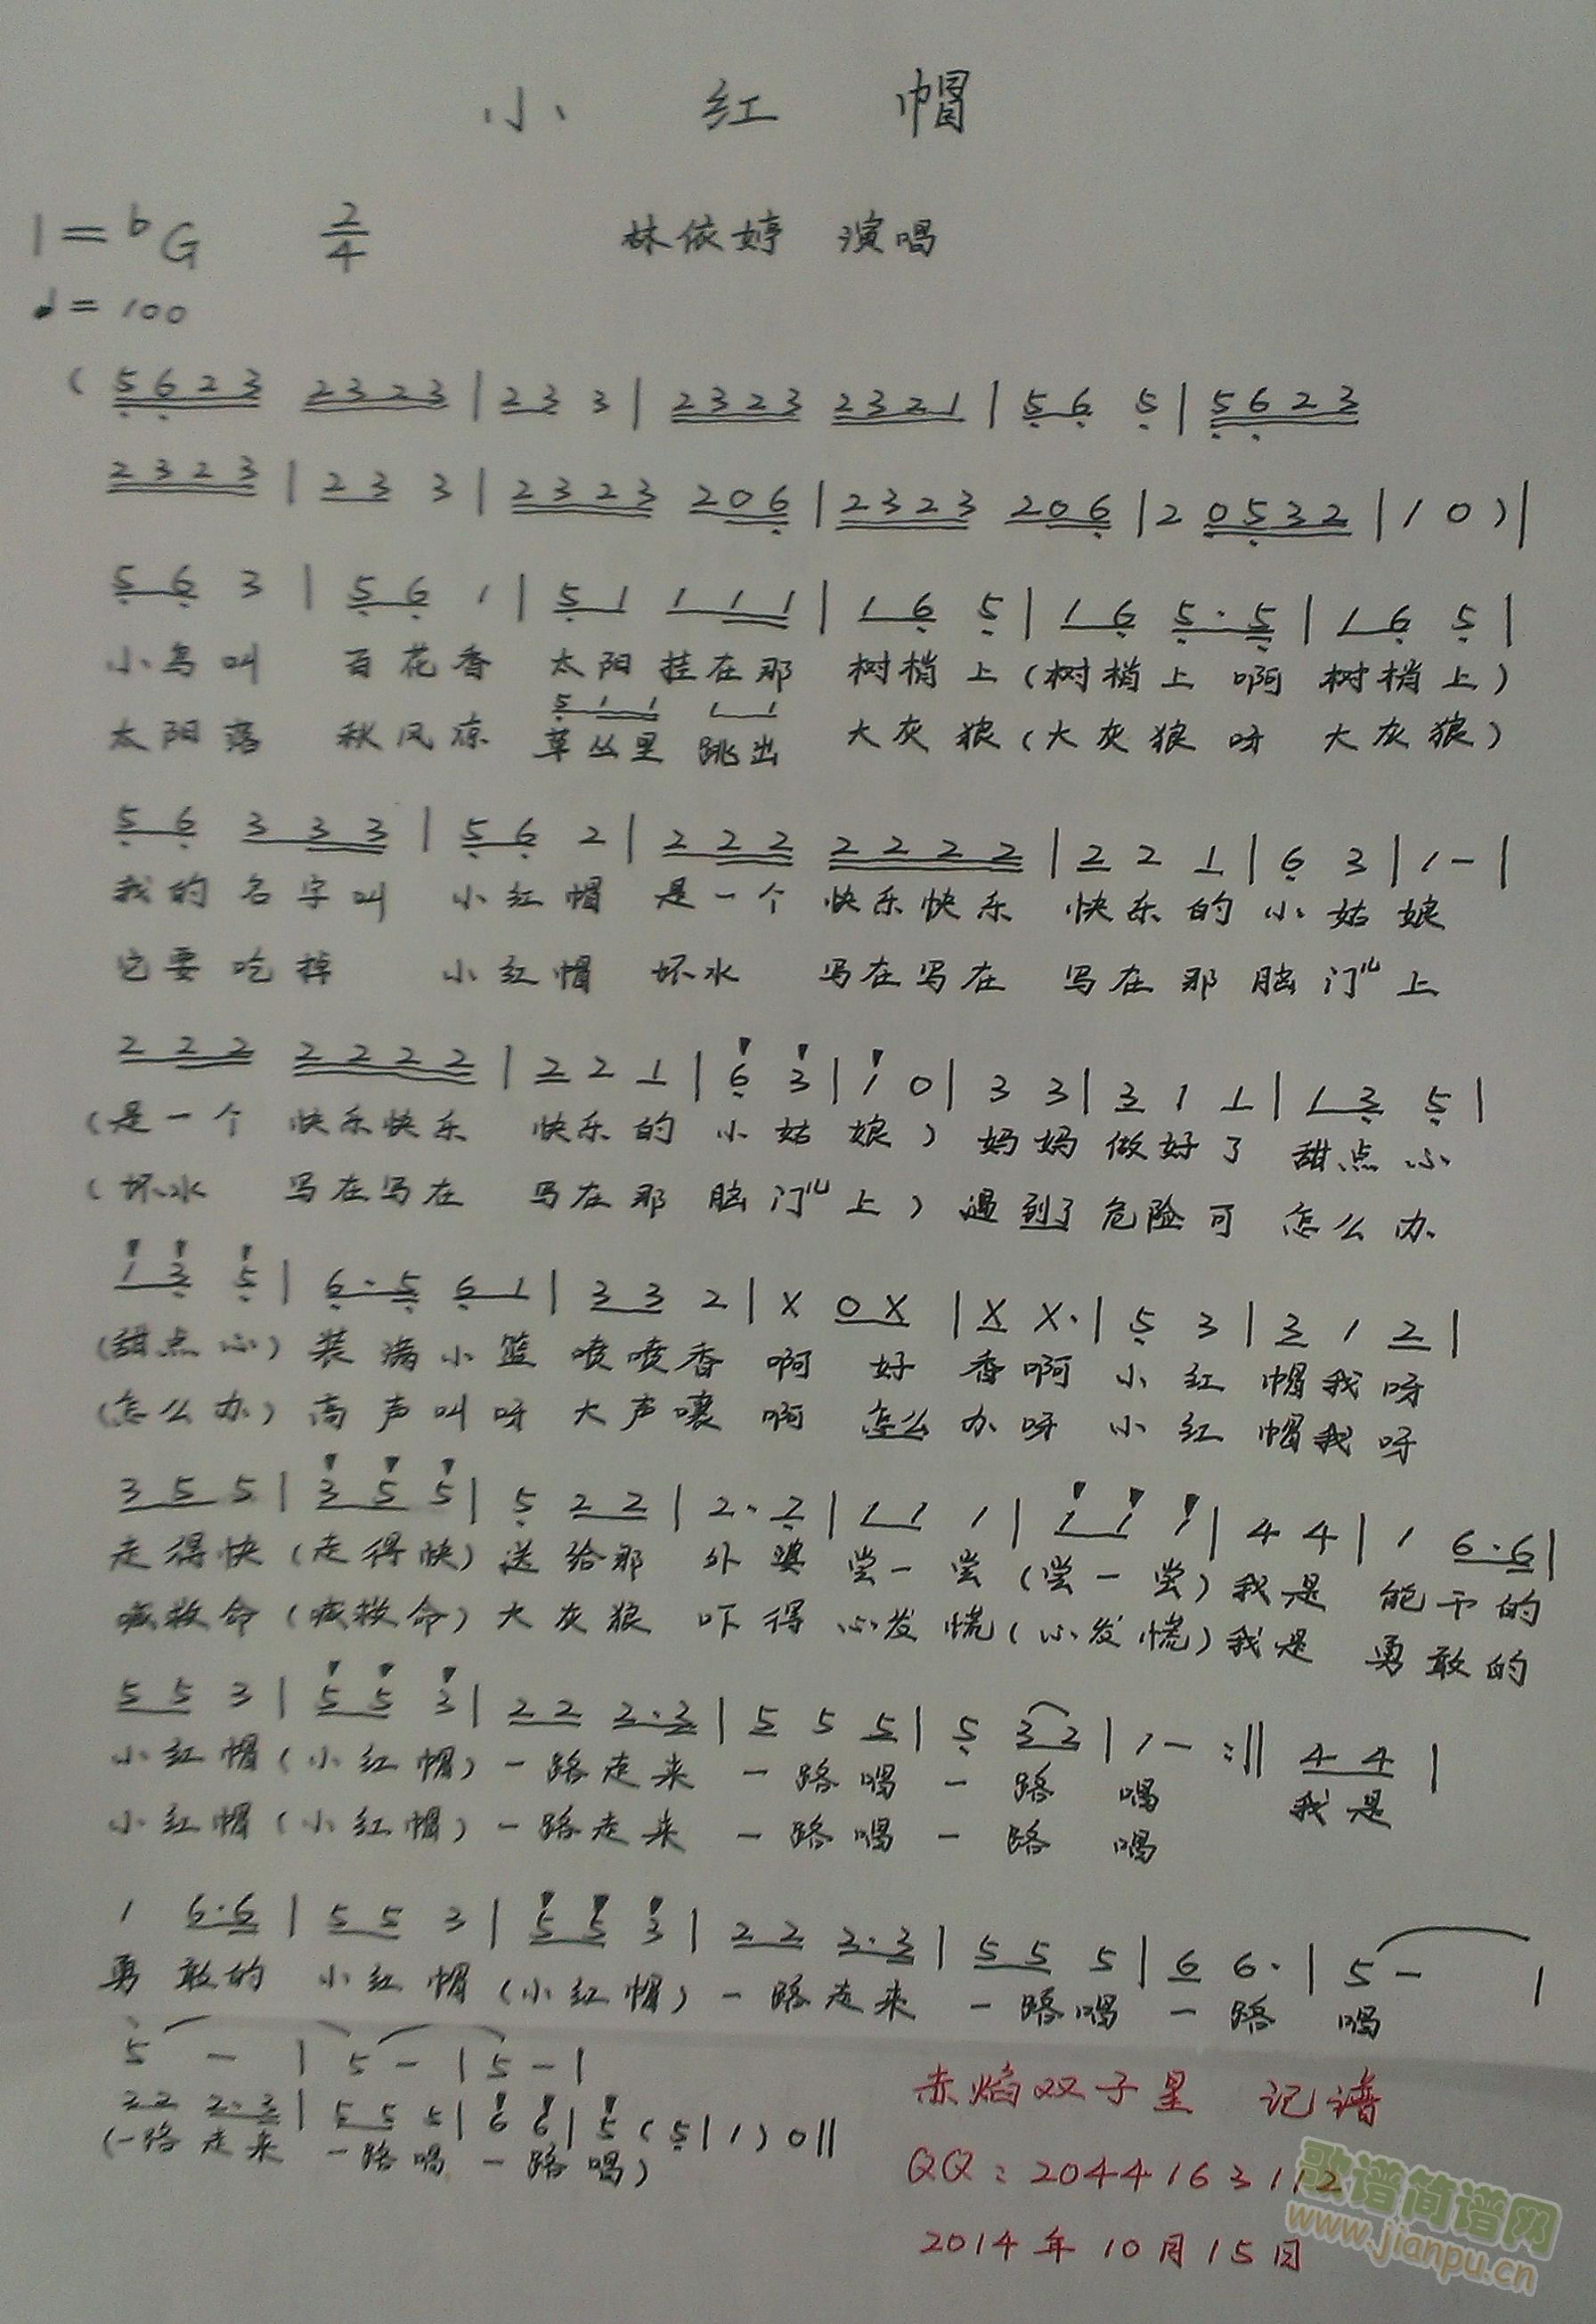 小 红 帽
1=♭G 2/4 林依婷 演唱
♩=100
( 5 6 2 3 2 3 2 3 | 2 3 3 | 2 3 2 3 2 3 2 1 | 5 6 5 | 5 6 2 3
2 3 2 3 | 2 3 3 | 2 3 2 3 2 0 6 | 2 3 2 3 2 0 6 | 2 0 5 3 2 | 1 0 ) |
5 6 3 | 5 6 1 | 5 1 1 1 1 | 1 6 5 | 1 6 5 · 5 | 1 6 5 |
小鸟叫 百花香 太阳挂在那 树梢上(树梢上 啊 树梢上)
5 1 1 1 1
太阳落 秋风凉 草丛里 跳出 大灰狼(大灰狼 呀 大灰狼)
5 6 3 3 3 | 5 6 2 | 2 2 2 2 2 2 2 | 2 2 1 | 6 3 | 1 - |
我的名字叫 小红帽 是一个 快乐快乐 快乐的小姑娘
它要吃掉 小红帽 坏水 写在写在 写在那脑门儿上
2 2 2 2 2 2 2 | 2 2 1 | 6 3 | 1 0 | 3 3 | 3 1 1 | 1 3 5 |
(是一个 快乐快乐 快乐的小姑娘)妈妈做好了 甜点心
(坏水 写在写在 写在那脑门儿上)遇到了危险可 怎么办
1 3 5 | 6 · 5 6 1 | 3 3 2 | X 0 X | X X · | 5 3 | 3 1 2 |
(甜点心)装满小篮 喷喷香 啊 好香啊 小红帽我呀
(怎么办)高声叫呀 大声嚷 啊 怎么办呀 小红帽我呀
3 5 5 | 3 5 5 | 5 2 2 | 2 · 2 | 1 1 1 | 1 1 1 | 4 4 | 1 6 · 6 |
走得快(走得快)送给那 外婆 尝一尝(尝一尝)我是 能干的
喊救命(喊救命)大灰狼 吓得心发慌(心发慌)我是 勇敢的
5 5 3 | 5 5 3 | 2 2 2 · 3 | 5 5 5 | 5 3 2 | 1 - :‖ 4 4 |
小红帽(小红帽)一路走来 一路唱一路唱 我是
小红帽(小红帽)一路走来 一路唱一路唱
1 6 · 6 | 5 5 3 | 5 5 3 | 2 2 2 · 3 | 5 5 5 | 6 6 · | 5 - |
勇敢的 小红帽(小红帽)一路走来 一路唱一路唱
5 - | 5 - | 5 - |
2 2 2 · 3 | 5 5 5 | 6 6 | 5 ( 5 | 1 ) 0 ‖
(一路走来 一路唱一路唱)
赤焰双子星 记谱
QQ:2044163112
2014年10月15日
歌谱简谱网
www.jianpu.cn